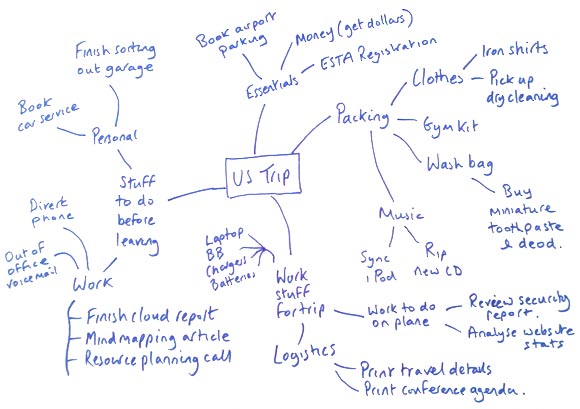 US Trip
Essentials
Book airport
parking
Money (get dollars)
ESTA Registration
Packing
Clothes
Iron shirts
Pick up
dry cleaning
Gym Kit
Wash bag
Buy
miniature
toothpaste
& deod.
Music
Sync
iPod
Rip
new CD
Work
stuff
for trip
Laptop
BB
Chargers
Batteries
Work to do
on plane
Review security
report.
Analyse website
stats
Logistics
Print travel details
Print conference agenda.
Stuff
to do
before
leaving
Personal
Finish sorting
out garage
Book
car service
Work
Direct
phone
Out of
office
voicemail
Finish cloud report
Mindmapping article
Resource planning call